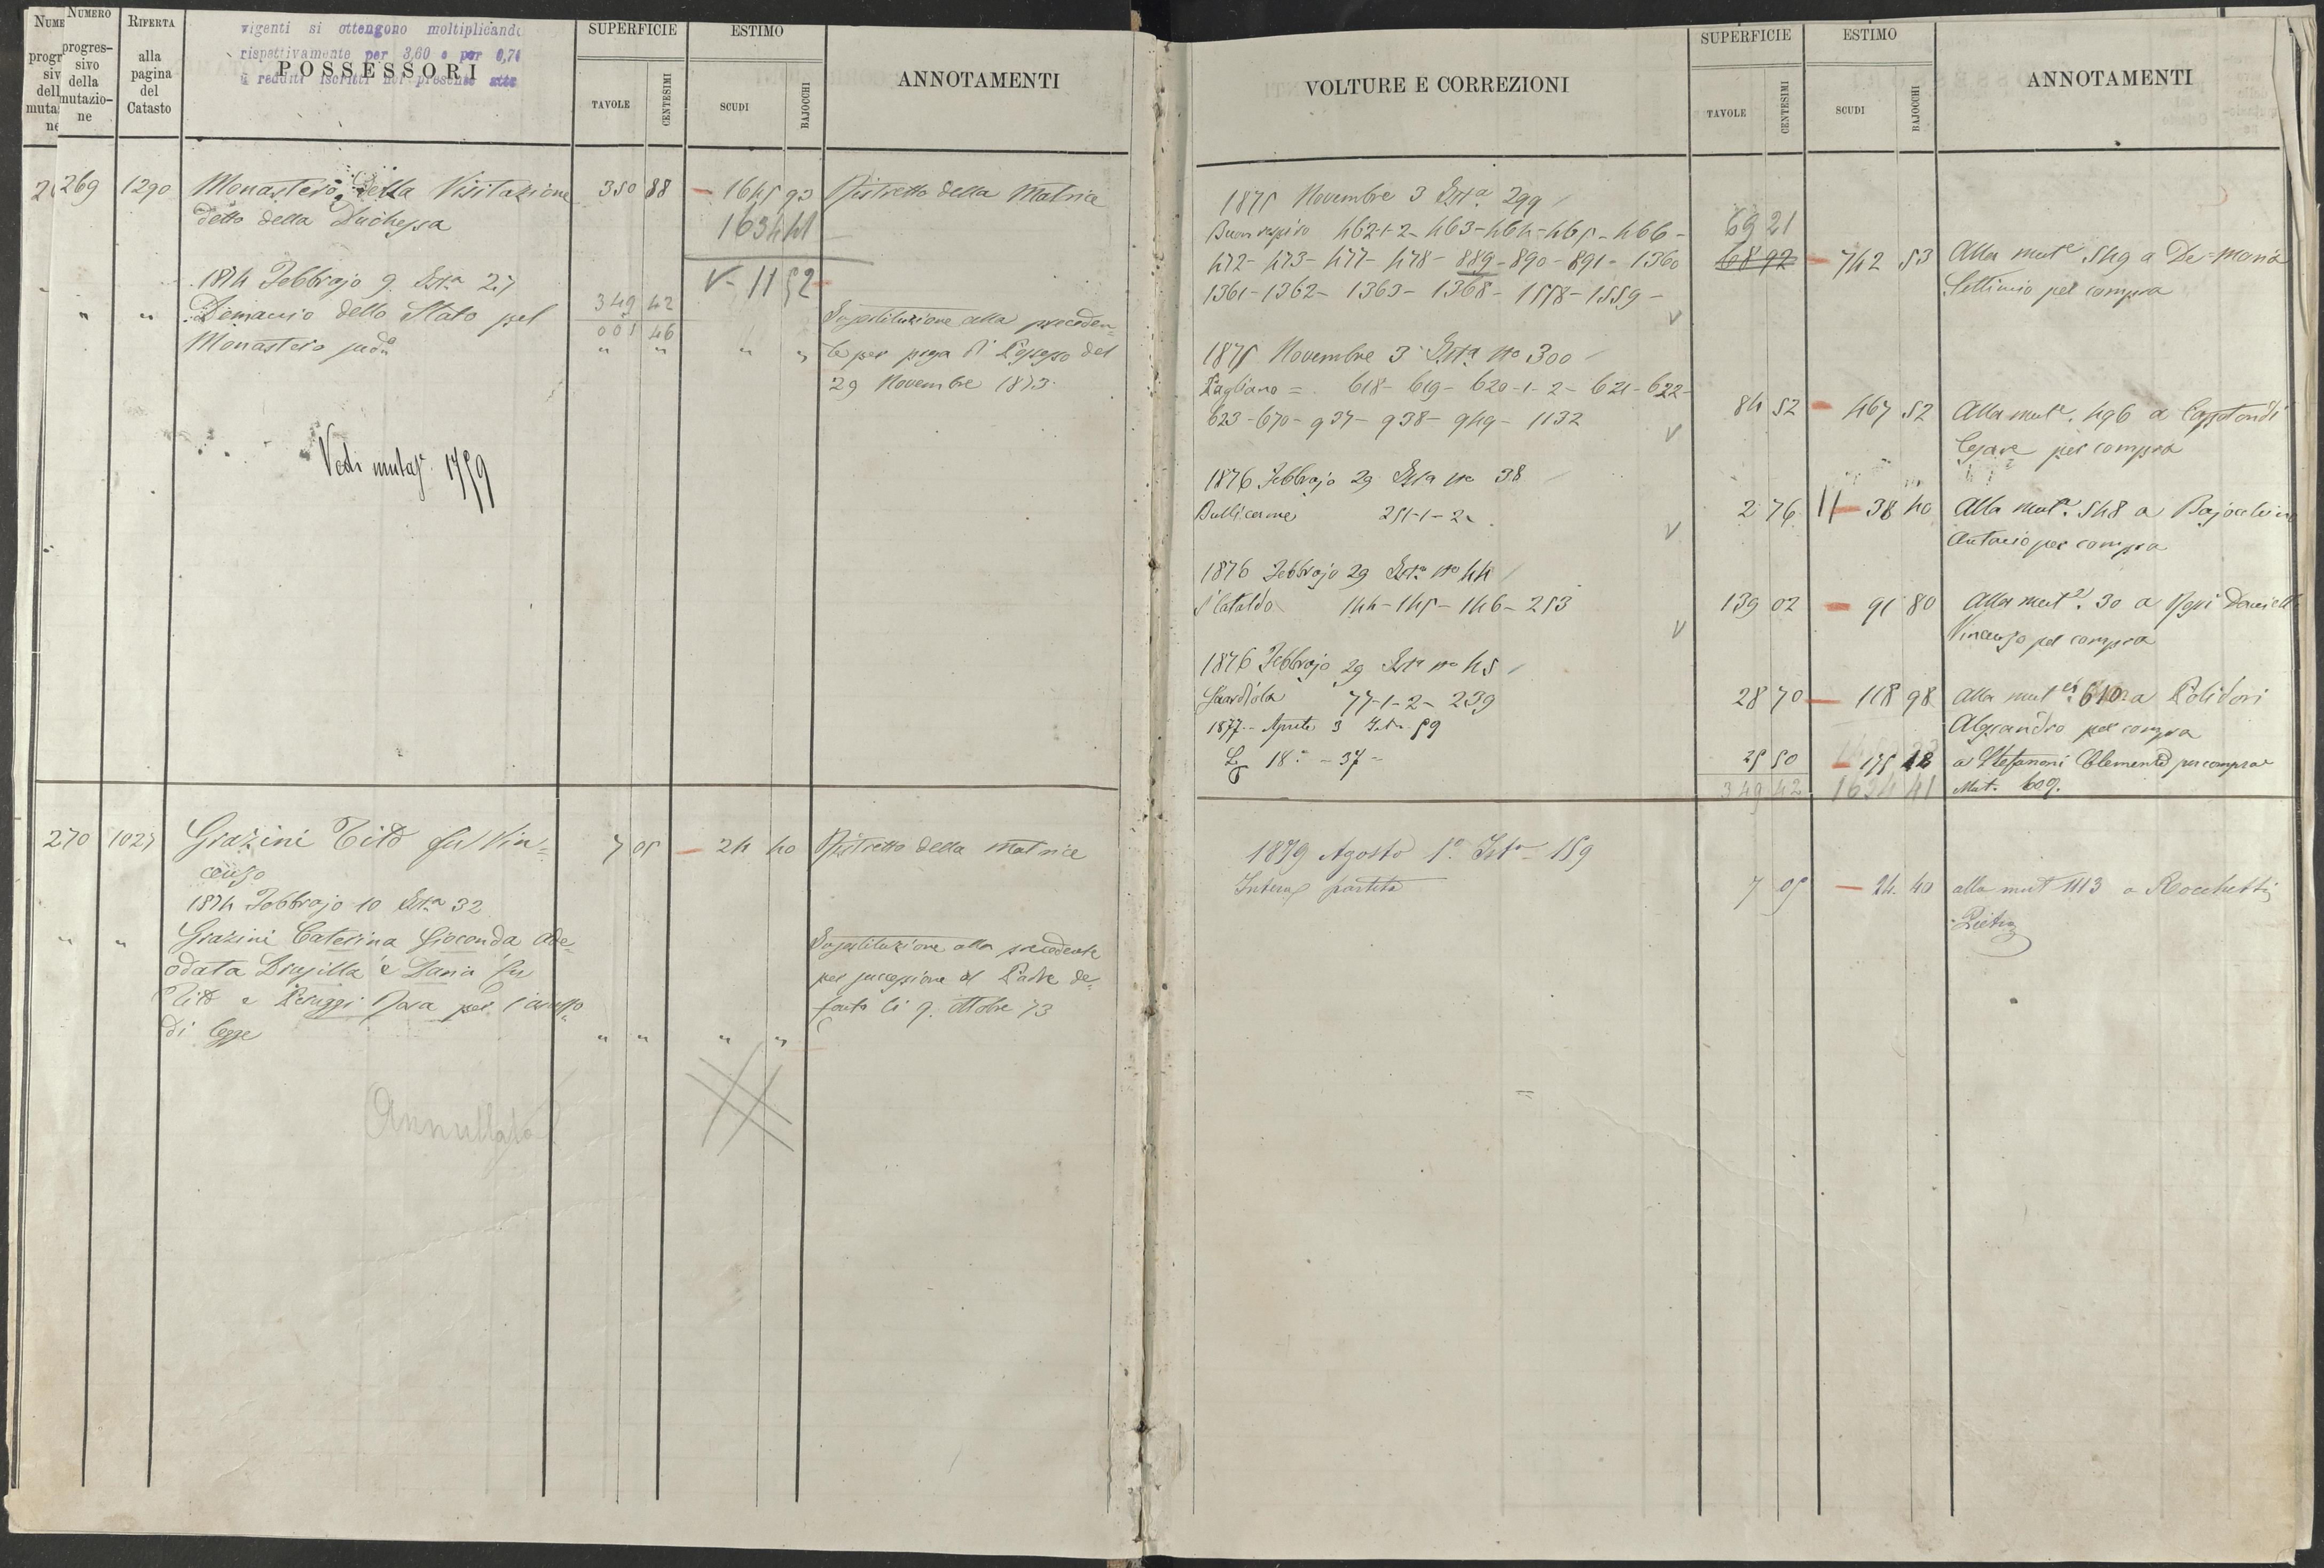 NUMERO
progres-
sivo
della
mutazio-
ne
RIFERTA
alla
pagina
del
Catasto
vigenti si ottengono moltiplicando
rispettivamente per 3,60 e per 0,74
i redditi iscritti nel presente
POSSESSORI
SUPERFICIE
TAVOLE
CENTESIMI
ESTIMO
SCUDI
BAJOCCHI
ANNOTAMENTI
269 1290 Monastero della Visitazione 350 88 1645 93 Ristretto della Matrice
detto della Duchessa 1634 41
1874 Febbrajo 9 Ista 27 V- 11 52
" " Demanio dello Stato pel 349 42 Sostituzione alla preceden=
Monastero sudo 001 46
" " " " te per presa di Possesso del
29 Novembre 1873
Vedi mutaz. 1759
270 1027 Grazini Tito fu Vin= 7 05 24 40 Ristretto della Matrice
cenzo
1874 Febbrajo 10 Ista 32
" " Grazini Caterina Gioconda Ade= Sostituzione alla precedente
odata Drusilla e Dania fu per successione al Padre de=
Tito e Peruggi Rosa per l'usuf.o funto li 9. Ottobre 73
di legge " " " "
Annullata
VOLTURE E CORREZIONI
SUPERFICIE
TAVOLE
CENTESIMI
ESTIMO
SCUDI
BAJOCCHI
ANNOTAMENTI
1875 Novembre 3 Ista 299
Buon respiro 462-1-2- 463-464-465-466- 69 21
472-473-477-478-889-890-891-1360 68 92 742 53 Alla muta 549 a De=Maria
1361-1362-1363-1368-1558-1559- Settimio per compra
1875 Novembre 3 Ista No 300
Pagliano = 618-619-620-1-2-621-622- 84 52 467 52 Alla muta. 496 a Cassotondi
623-670-937-938-949-1132 Cesare per compra
1876 Febbrajo 29 Ista No 38
Bullicame 251-1-2 2 76 38 40 Alla muta. 548 a Bajocchino
Antonio per compra
1876 Febbrajo 29 Ista No 44
S. Cataldo 144-145-146-253 139 02 91 80 Alla muta. 30 a Rossi Danielli
Vincenzo per compra
1876 Febbrajo 29 Ista No 45
Guardiola 77-1-2-239 28 70 118 98 Alla muta 610 a Polidori
1877 Aprile 3 Ista 59 Alessandro per compra
18a - 37 - 25 50 175 18 a Stefanoni Clemente per compra
349 42 1634 41 Mut. 609.
1879 Agosto 1o Ista 159
Intera partita 7 05 24. 40 alla mut 1113 a Rocchetti
Pietro